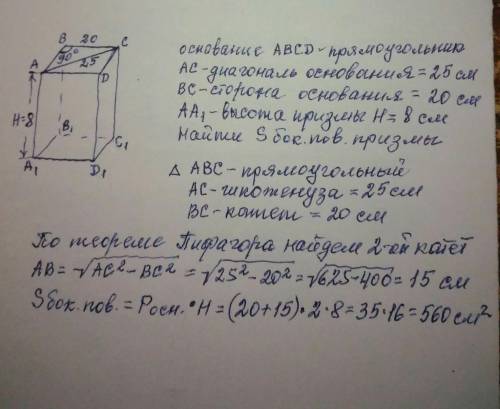 B 20 C
90°
25
A D
H=8
B₁ C₁
A₁ D₁
основание ABCD - прямоугольник
AC - диагональ основания = 25 см
BC - сторона основания = 20 см
AA₁ - высота призмы H = 8 см
Найти S бок. пов. призмы
△ ABC - прямоугольный
AC - гипотенуза = 25 см
BC - катет = 20 см
По теореме Пифагора найдем 2-ой катет
AB = √AC² - BC² = √25² - 20² = √625 - 400 = 15 см
Sбок. пов. = Pосн. • H = (20+15) • 2 • 8 = 35 • 16 = 560 см²